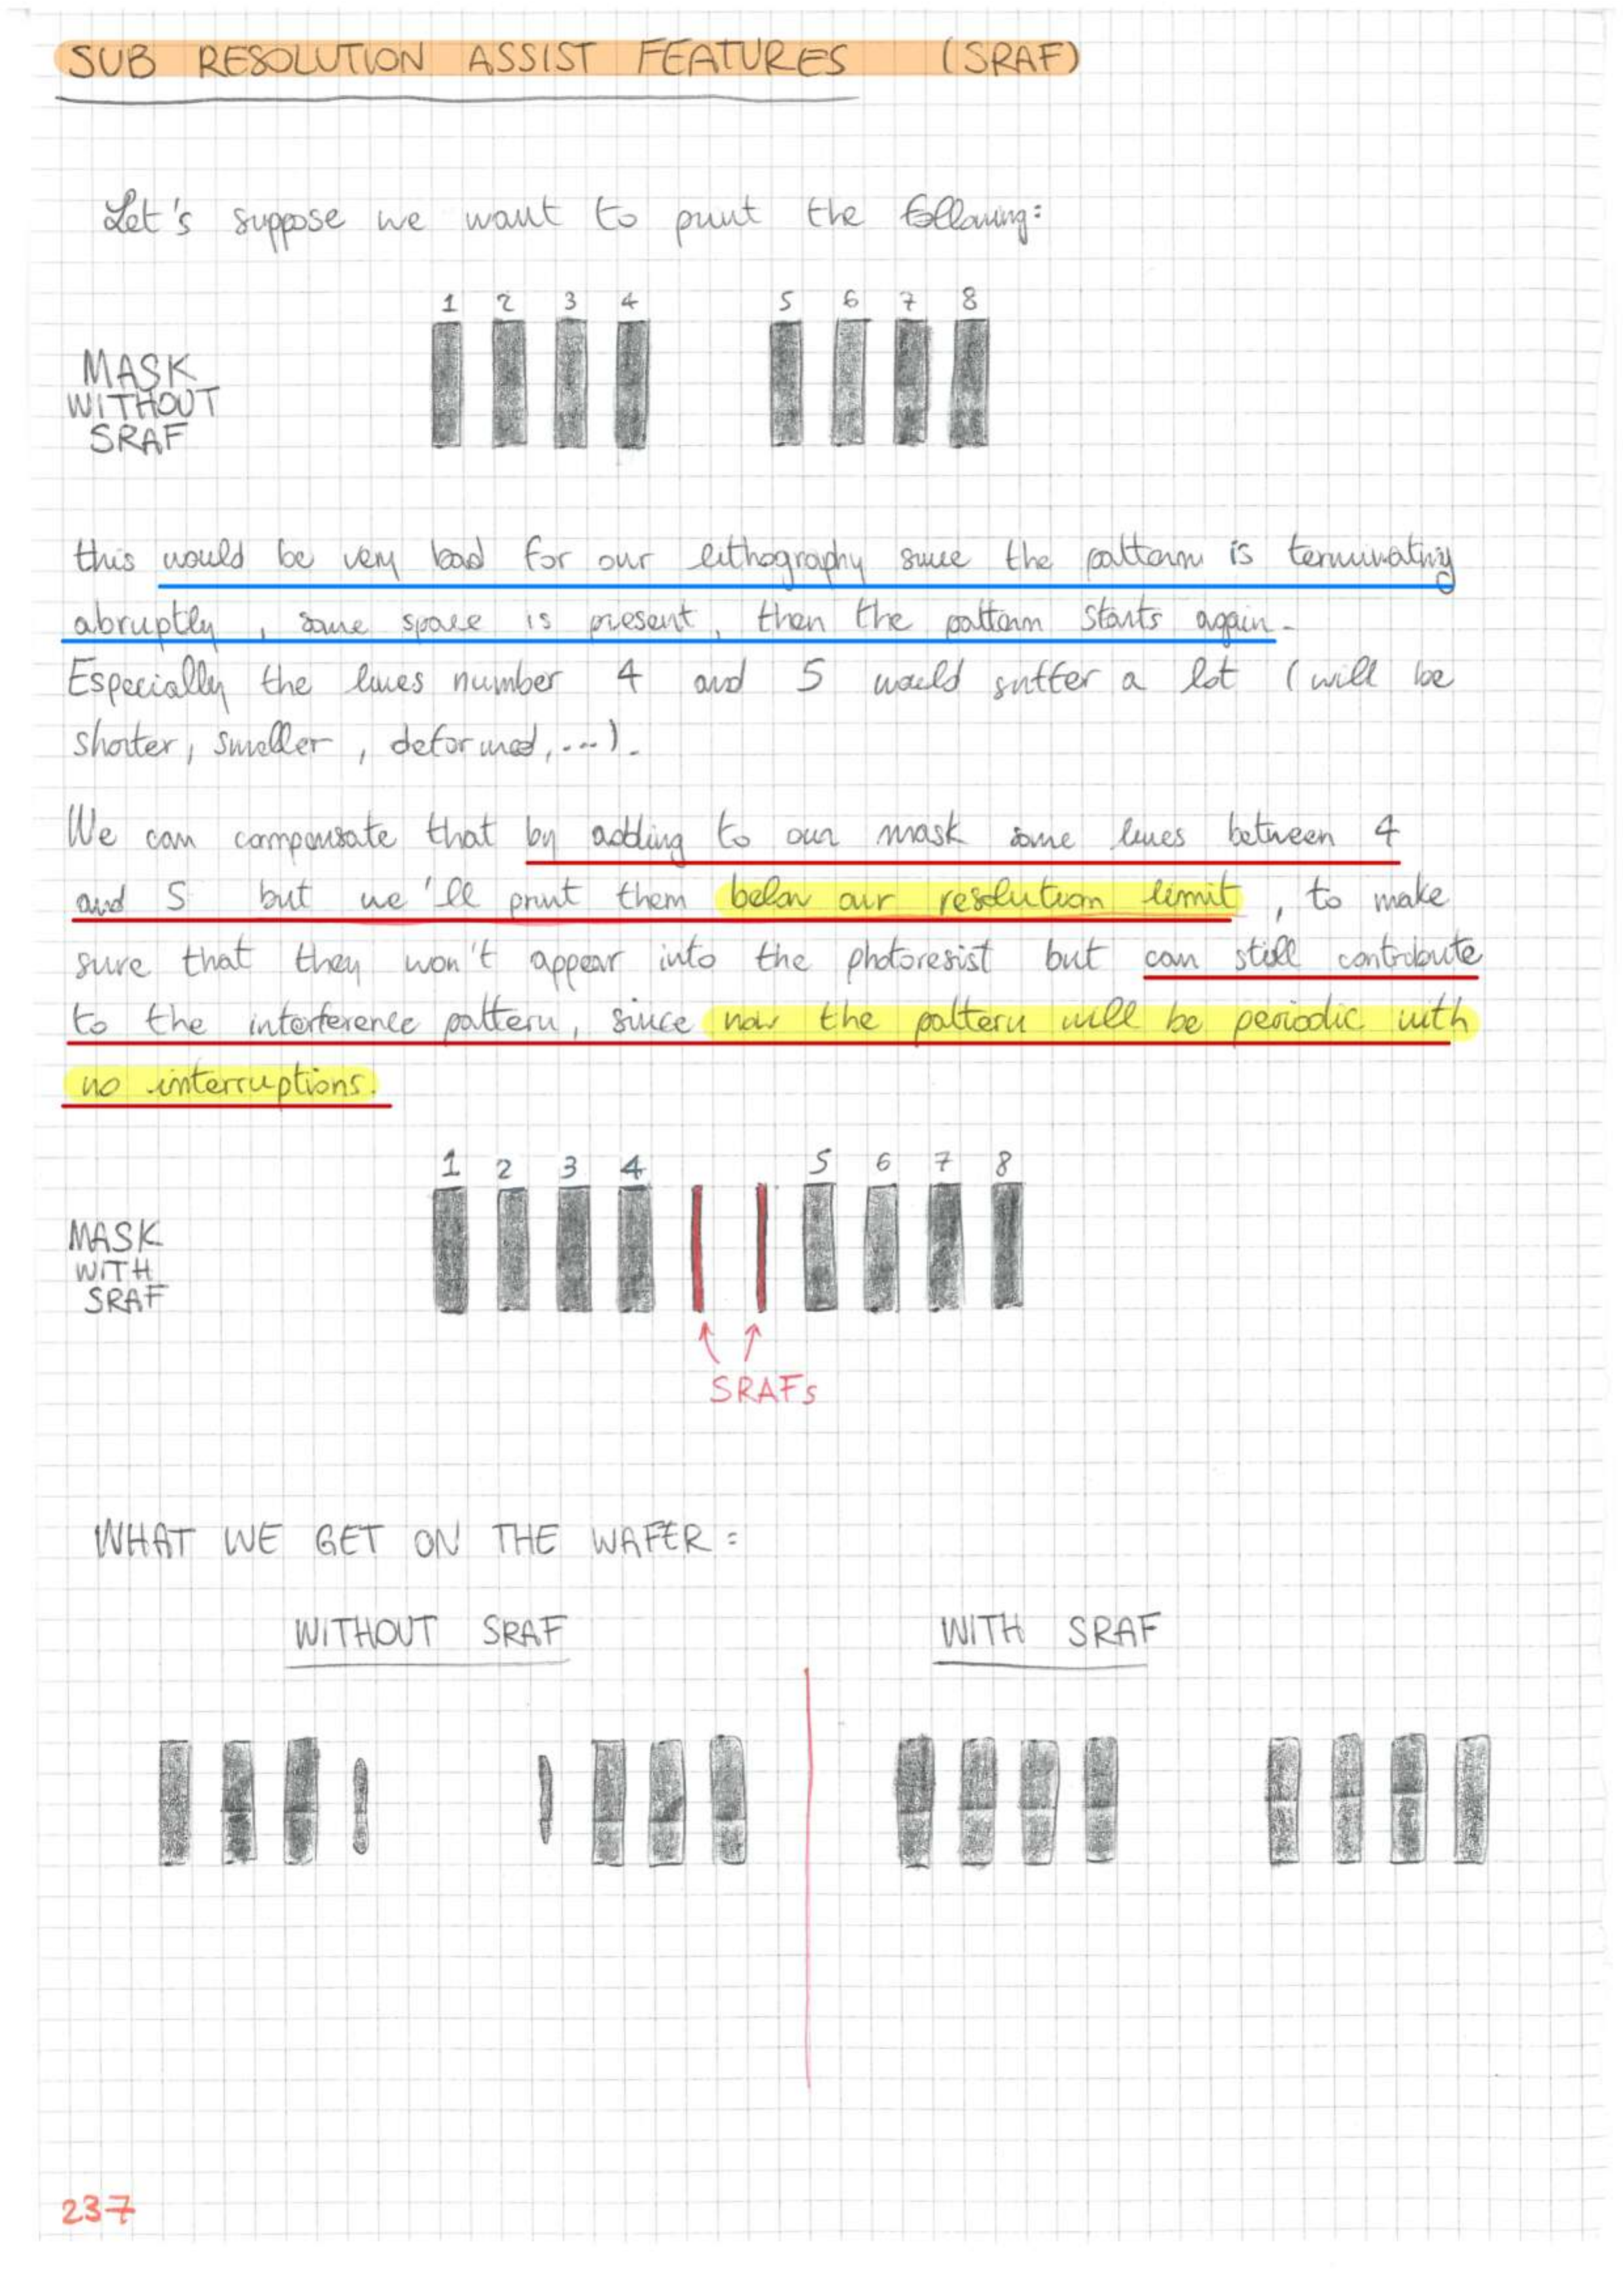 SUB RESOLUTION ASSIST FEATURES (SRAF)
Let's suppose we want to print the following:
1 2 3 4 5 6 7 8
MASK
WITHOUT
SRAF
this would be very bad for our lithography since the pattern is terminating
abruptly, some space is present, then the pattern starts again.
Especially the lines number 4 and 5 would suffer a lot (will be
shorter, smaller, deformed, ...).
We can compensate that by adding to our mask some lines between 4
and 5 but we'll print them below our resolution limit, to make
sure that they won't appear into the photoresist but can still contribute
to the interference pattern, since now the pattern will be periodic with
no interruptions.
1 2 3 4 5 6 7 8
MASK
WITH
SRAF
SRAFs
WHAT WE GET ON THE WAFER:
WITHOUT SRAF WITH SRAF
237